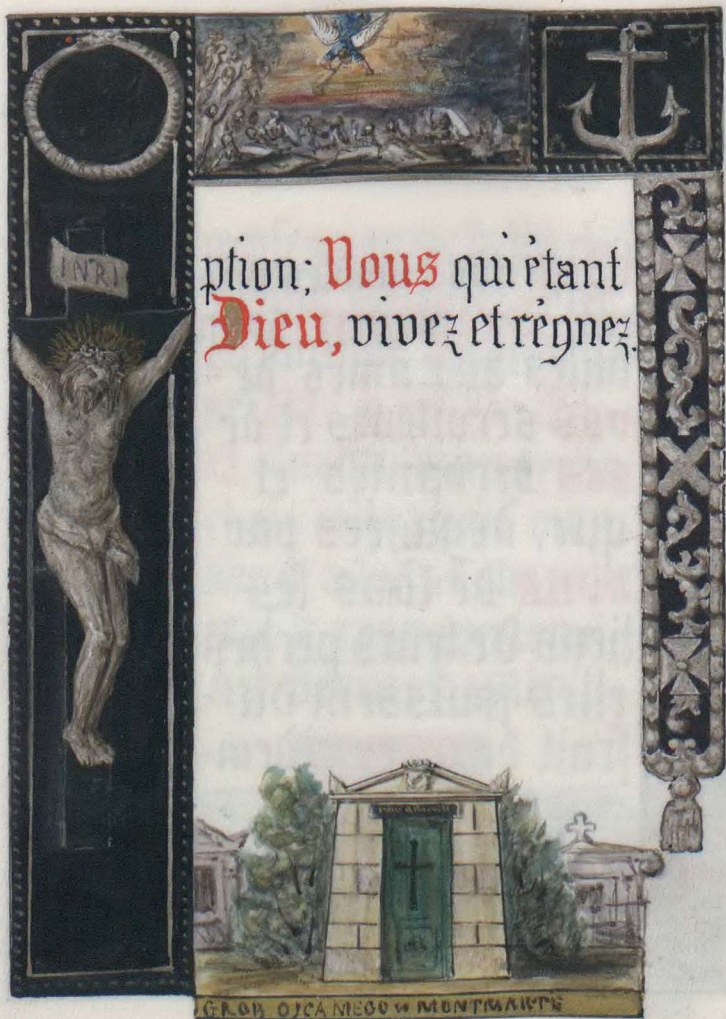 INRI
ption; Vous qui étant
Dieu, vivez et régnez.
GROB OJCA MEGO W MONTMARTE